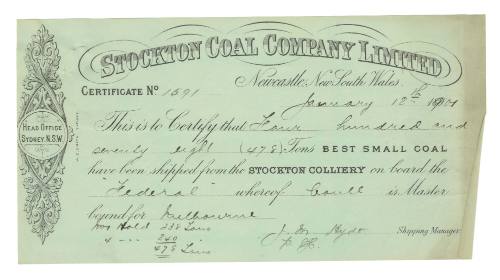 STOCKTON COAL COMPANY LIMITED
Newcastle, New South Wales.
CERTIFICATE No 1591
January 12th 1901
This is to Certify that Four hundred and
seventy eight (478) Tons BEST SMALL COAL
have been shipped from the STOCKTON COLLIERY on board the
"Federal" whereof Coull is Master
bound for Melbourne
HEAD OFFICE
SYDNEY. N.S.W.
No 3 Hold 238 Tons
4 " " 240
478 Tons
J. M. Hyde Shipping Manager